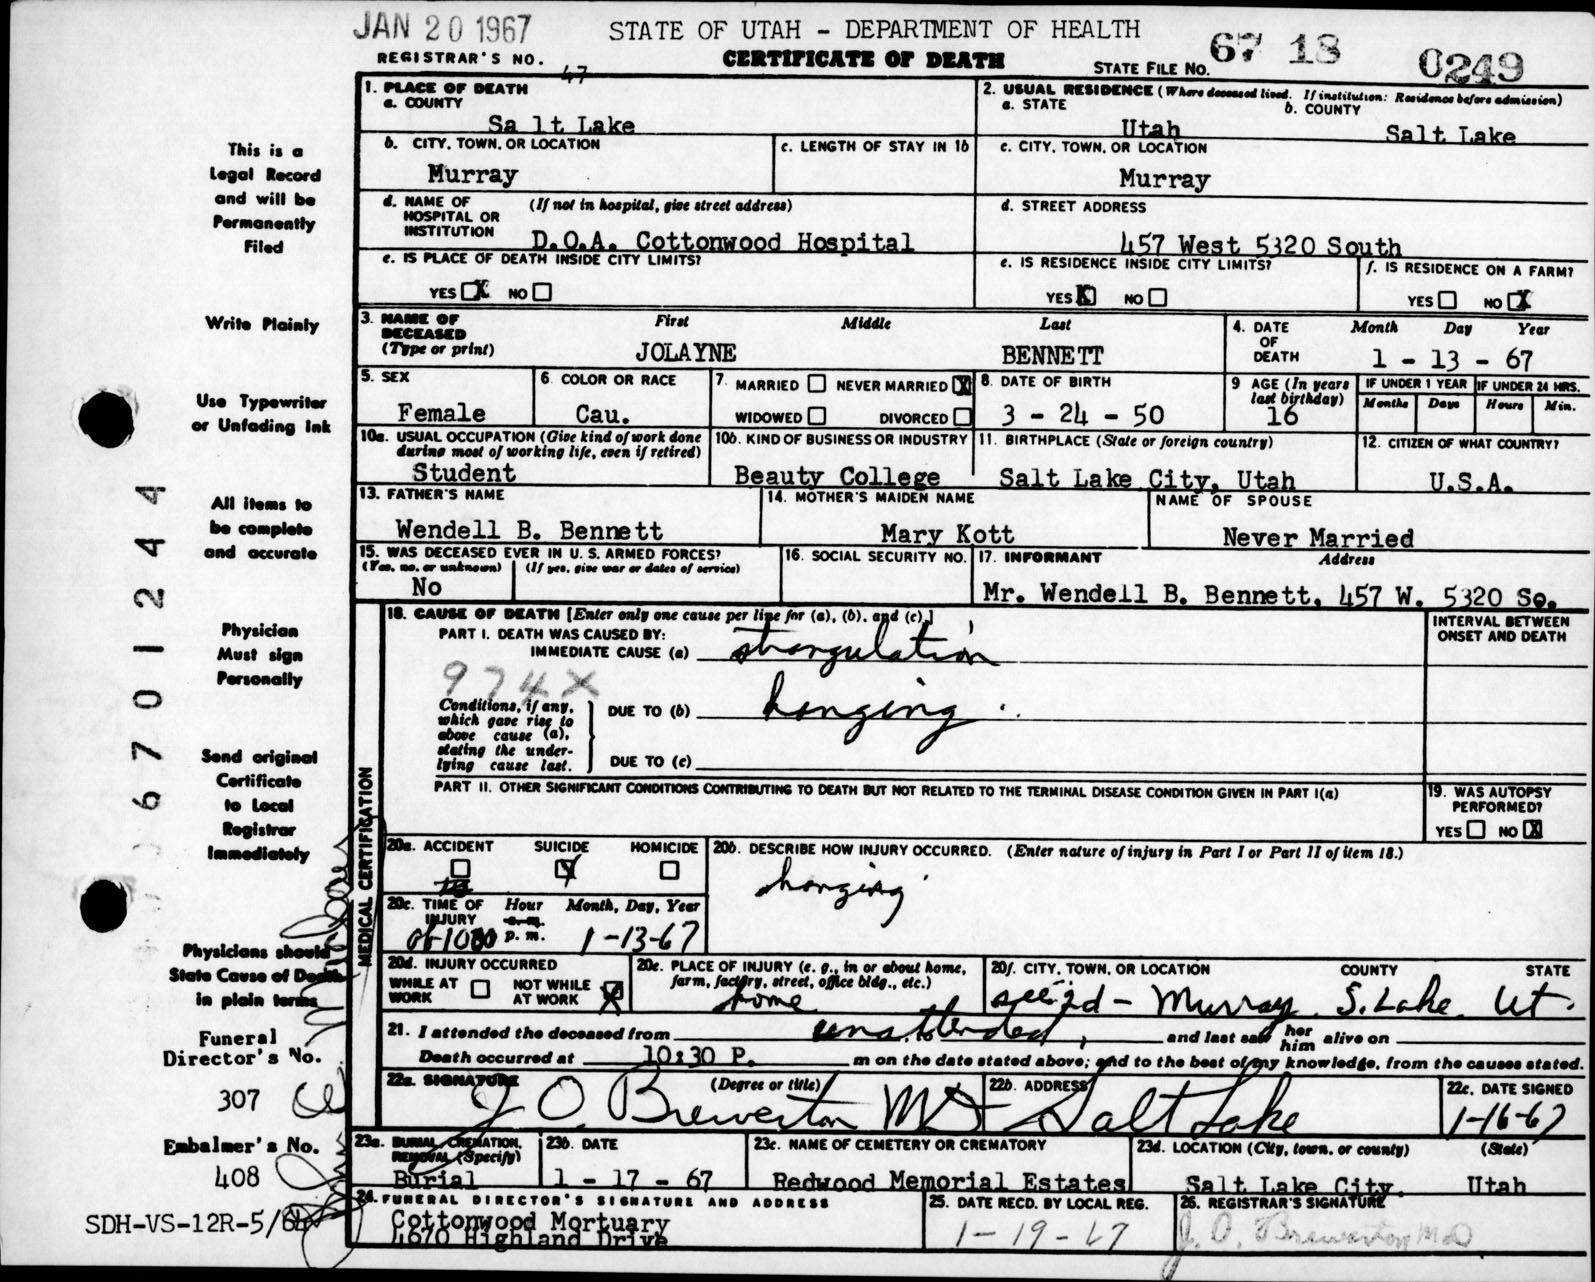 JAN 20 1967
STATE OF UTAH – DEPARTMENT OF HEALTH
REGISTRAR'S NO. 47
CERTIFICATE OF DEATH
STATE FILE NO. 67 18 0249
1. PLACE OF DEATH
a. COUNTY
Sa lt Lake
2. USUAL RESIDENCE (Where deceased lived. If institution: Residence before admission)
a. STATE b. COUNTY
Utah Salt Lake
b. CITY, TOWN, OR LOCATION
Murray
c. LENGTH OF STAY IN 1b
c. CITY, TOWN, OR LOCATION
Murray
d. NAME OF HOSPITAL OR INSTITUTION (If not in hospital, give street address)
D.O.A. Cottonwood Hospital
d. STREET ADDRESS
457 West 5320 South
e. IS PLACE OF DEATH INSIDE CITY LIMITS?
YES X NO
e. IS RESIDENCE INSIDE CITY LIMITS?
YES X NO
f. IS RESIDENCE ON A FARM?
YES NO X
3. NAME OF DECEASED (Type or print)
First Middle Last
JOLAYNE BENNETT
4. DATE OF DEATH
Month Day Year
1 - 13 - 67
5. SEX
Female
6. COLOR OR RACE
Cau.
7. MARRIED NEVER MARRIED X
WIDOWED DIVORCED
8. DATE OF BIRTH
3 - 24 - 50
9 AGE (In years last birthday)
16
IF UNDER 1 YEAR IF UNDER 24 HRS.
Months Days Hours Min.
10a. USUAL OCCUPATION (Give kind of work done during most of working life, even if retired)
Student
10b. KIND OF BUSINESS OR INDUSTRY
Beauty College
11. BIRTHPLACE (State or foreign country)
Salt Lake City, Utah
12. CITIZEN OF WHAT COUNTRY?
U.S.A.
13. FATHER'S NAME
Wendell B. Bennett
14. MOTHER'S MAIDEN NAME
Mary Kott
NAME OF SPOUSE
Never Married
15. WAS DECEASED EVER IN U. S. ARMED FORCES?
(Yes, no, or unknown) (If yes, give war or dates of service)
No
16. SOCIAL SECURITY NO.
17. INFORMANT Address
Mr. Wendell B. Bennett, 457 W. 5320 So.
18. CAUSE OF DEATH [Enter only one cause per line for (a), (b), and (c).]
PART I. DEATH WAS CAUSED BY:
IMMEDIATE CAUSE (a) strangulation
974X
Conditions, if any, which gave rise to above cause (a), stating the underlying cause last.
DUE TO (b) hanging
DUE TO (c)
INTERVAL BETWEEN ONSET AND DEATH
PART II. OTHER SIGNIFICANT CONDITIONS CONTRIBUTING TO DEATH BUT NOT RELATED TO THE TERMINAL DISEASE CONDITION GIVEN IN PART I(a)
19. WAS AUTOPSY PERFORMED?
YES NO X
20a. ACCIDENT SUICIDE HOMICIDE
20b. DESCRIBE HOW INJURY OCCURRED. (Enter nature of injury in Part I or Part II of item 18.)
hanging
20c. TIME OF INJURY Hour Month, Day, Year
a.m.
p.m. 1-13-67
20d. INJURY OCCURRED
WHILE AT WORK NOT WHILE AT WORK X
20e. PLACE OF INJURY (e. g., in or about home, farm, factory, street, office bldg., etc.)
home
20f. CITY, TOWN, OR LOCATION COUNTY STATE
see 2d - Murray S. Lake Ut.
21. I attended the deceased from unattended, and last saw her him alive on
Death occurred at 10:30 P. m on the date stated above; and to the best of my knowledge, from the causes stated.
22a. SIGNATURE (Degree or title)
J O. Brewerton MD
22b. ADDRESS
Salt Lake
22c. DATE SIGNED
1-16-67
23a. BURIAL, CREMATION, REMOVAL (Specify)
Burial
23b. DATE
1 - 17 - 67
23c. NAME OF CEMETERY OR CREMATORY
Redwood Memorial Estates
23d. LOCATION (City, town, or county) (State)
Salt Lake City, Utah
24. FUNERAL DIRECTOR'S SIGNATURE AND ADDRESS
Cottonwood Mortuary
4670 Highland Drive
25. DATE RECD. BY LOCAL REG.
1-19-67
26. REGISTRAR'S SIGNATURE
J. O. Brewerton MD
MEDICAL CERTIFICATION
This is a
Legal Record
and will be
Permanently
Filed
Write Plainly
Use Typewriter
or Unfading Ink
All items to
be complete
and accurate
Physician
Must sign
Personally
Send original
Certificate
to Local
Registrar
Immediately
Physicians should
State Cause of Death
in plain terms
Funeral
Director's No.
307
Embalmer's No.
408
SDH-VS-12R-5/6
6701244